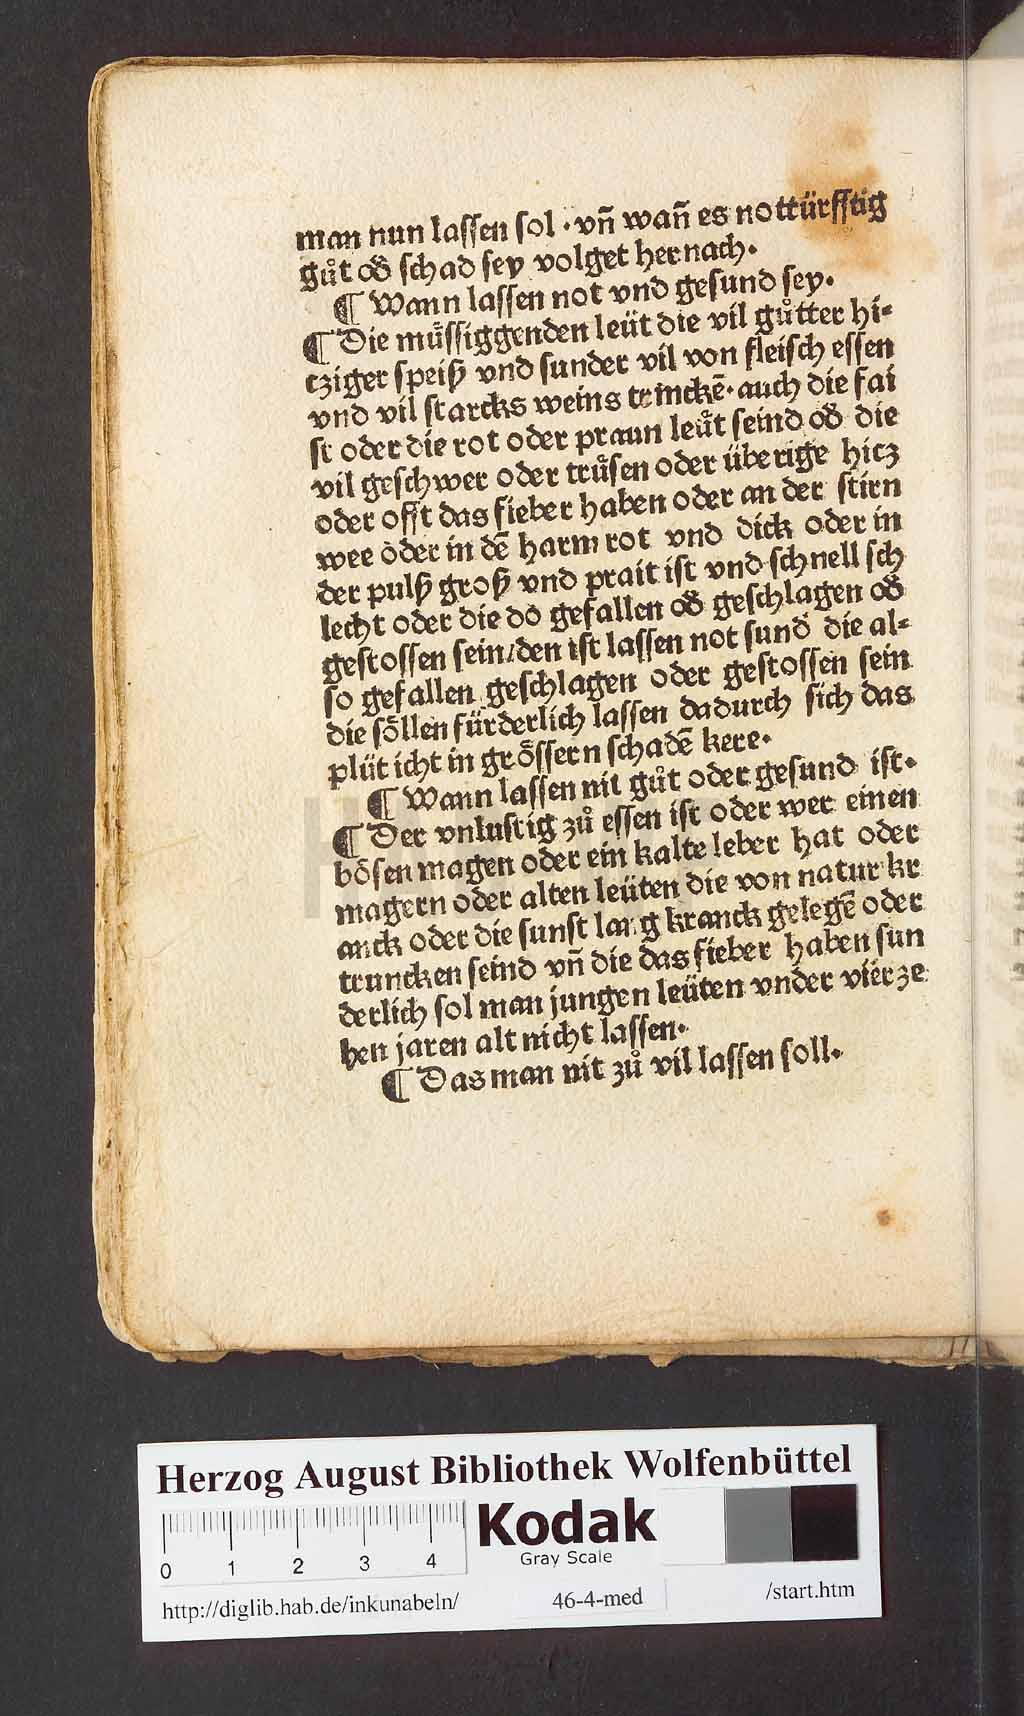 man nun laſſen ſol · vñ wañ es nottürfftig
gůt od̕ ſchad ſey volget hernach·
¶ Wann laſſen not vnd geſund ſey·
¶ Die müſſiggenden leüt die vil gůtter hi⸗
tziger ſpeiß vnd ſunder vil von fleiſch eſſen
vnd vil ſtarcks weins trinckē· auch die fai
ſt oder die rot oder praun leüt ſeind od̕ die
vil geſchwer oder trüſen oder überige hitz
oder offt das fieber haben oder an der ſtirn
wee oder in dē harm rot vnd dick oder in
der pulß groß vnd prait iſt vnd ſchnell ſch
lecht oder die do gefallen od̕ geſchlagen od̕
geſtoſſen ſein/den iſt laſſen not ſund die al⸗
ſo gefallen geſchlagen oder geſtoſſen ſein
die ſöllen fürderlich laſſen dadurch ſich das
plüt icht in gröſſern ſchadē kere·
¶ Wann laſſen nit gůt oder geſund iſt·
¶ Der vnluſtig zů eſſen iſt oder wer einen
böſen magen oder ein kalte leber hat oder
magern oder alten leüten die von natur kr
anck oder die ſunſt lang kranck gelegē oder
truncken ſeind vñ die das fieber haben ſun
derlich ſol man jungen leüten vnder vierze
hen jaren alt nicht laſſen·
¶ Das man nit zů vil laſſen ſoll·
Herzog August Bibliothek Wolfenbüttel
0 1 2 3 4
Kodak
Gray Scale
http://diglib.hab.de/inkunabeln/ 46-4-med /start.htm